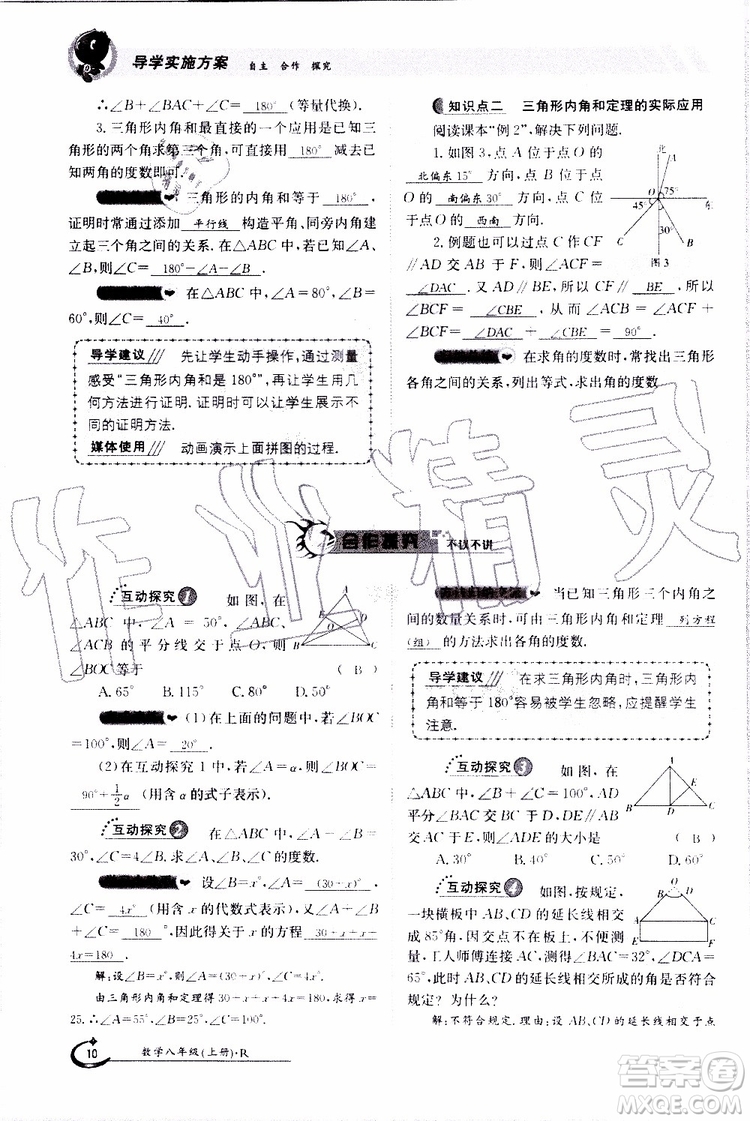 导学实施方案 自主 合作 探究
∴∠B+∠BAC+∠C= 180° (等量代换).
3. 三角形内角和最直接的一个应用是已知三
角形的两个角求第三个角,可直接用 180° 减去已
知两角的度数即可.
三角形的内角和等于 180° ,
证明时常通过添加 平行线 构造平角、同旁内角建
立起三个角之间的关系. 在△ABC 中,已知∠A、
∠B,则∠C= 180°-∠A-∠B .
在△ABC 中,∠A=80°,∠B=
60°,则∠C= 40° .
导学建议 先让学生动手操作,通过测量
感受“三角形内角和是180°”,再让学生用几
何方法进行证明. 证明时可以鼓励学生展示不
同的证明方法.
媒体使用 动画演示上面拼图的过程.
知识点二 三角形内角和定理的实际应用
阅读课本“例2”,解决下列问题.
1. 如图 3,点 A 位于点 O 的
北偏东15° 方向,点 B 位于
点 O 的 南偏东30° 方向,点 C 位
于点 O 的 西南 方向.
2. 例题也可以过点 C 作 CF
∥AD 交 AB 于 F,则∠ACF=
∠DAC . 又 AD∥BE,所以 CF∥ BE ,所以
∠BCF= ∠CBE ,从而∠ACB=∠ACF+
∠BCF= ∠DAC + ∠CBE = 90° .
在求角的度数时,常找出三角形
各角之间的关系,列出等式,求出角的度数.
北 A O 75° 45° 东 30° C B
图 3
合作探究 不议不讲
互动探究 1 如图,在
△ABC 中,∠A = 50°,∠ABC、
∠ACB 的平分线交于点 O,则
∠BOC 等于 ( B )
A. 65° B. 115° C. 80° D. 50°
(1)在上面的问题中,若∠BOC
=100°,则∠A= 20° .
(2)在互动探究 1 中,若∠A=α,则∠BOC=
90°+1/2α (用含 α 的式子表示).
互动探究 2 在△ABC 中,∠A-∠B=
30°,∠C=4∠B. 求∠A、∠B、∠C 的度数.
设∠B=x°,则∠A= (30+x)° ,
∠C= 4x° (用含 x 的代数式表示),又∠A+∠B+
∠C= 180 °,因此得关于 x 的方程 30+x+x+
4x=180 .
解:设∠B=x°,则∠A=(30+x)°,∠C=4x°,
由三角形内角和定理得30+x+x+4x=180,求得 x=
25. ∴∠A=55°,∠B=25°,∠C=100°.
当已知三角形三个内角之
间的数量关系时,可由三角形内角和定理 列方程
(组) 的方法求出各角的度数.
导学建议 在求三角形内角时,三角形内
角和等于180°容易被学生忽略,应提醒学生
注意.
互动探究 3 如图,在
△ABC 中,∠B=∠C,∠BAC=100°,AD
平分∠BAC 交 BC 于点 D,DE∥AB,
交 AC 于点 E,则∠ADE 的大小是 ( B )
A. 30° B. 50° C. 40° D. 60°
互动探究 4 如图,按规定,
一块横板中 AB、CD 的延长线相交
成85°角,因交点不在板上,不便测量,
工人师傅连接 AC,测得∠BAC=30°,∠DCA=
65°,此时 AB、CD 的延长线相交所成的角是否符合
规定? 为什么?
解:不符合规定. 理由:设 AB、CD 的延长线相交于点
10 数学八年级(上册)·R
作业精灵
答案圈
MXQE.COM